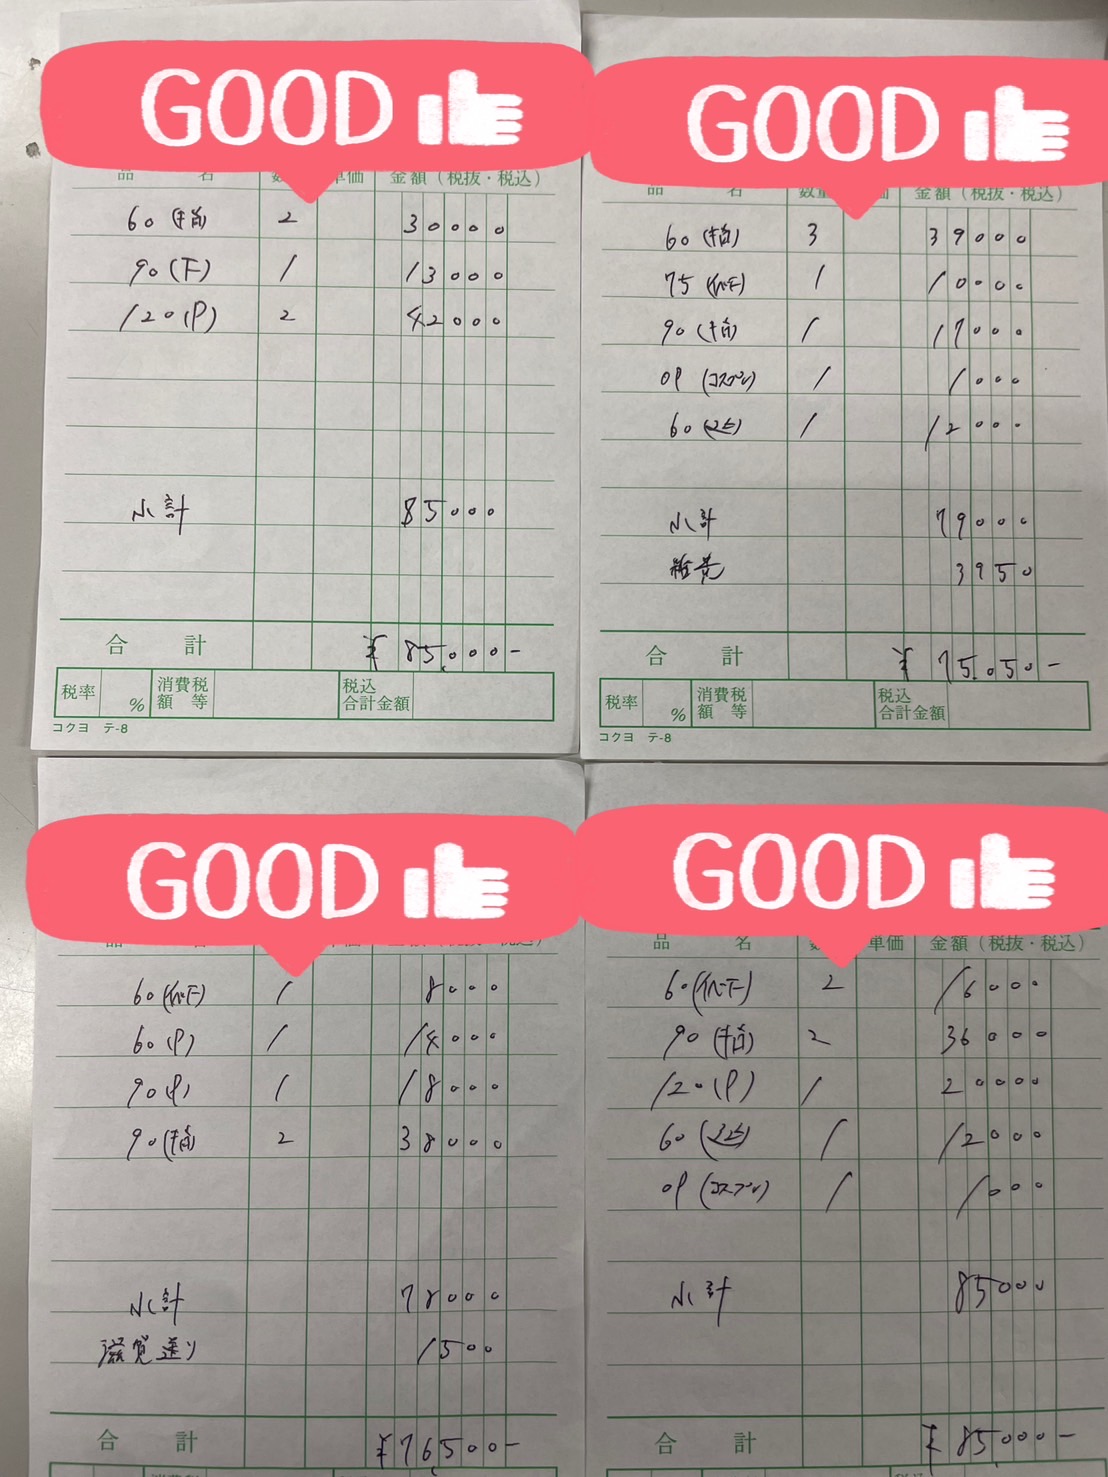 GOOD
品 名 数 単価 金額（税抜・税込）
60（指） 2 30000
90（下） 1 13000
120（P） 2 42000
小計 85000
合 計 ¥85,000-
税率 % 消費税額等 税込合計金額
コクヨ テ-8
GOOD
品 名 数量 価 金額（税抜・税込）
60（指） 3 39000
75 1 10000
90（指） 1 17000
OP（コスプレ） 1 1000
60 1 12000
小計 79000
雑費 3950
合 計 ¥75,050-
税率 % 消費税額等 税込合計金額
コクヨ テ-8
GOOD
60 1 8000
60（P） 1 14000
90（P） 1 18000
90（指） 2 38000
小計 78000
滋賀送り 1500
合 計 ¥76,500-
GOOD
品 名 数 単価 金額（税抜・税込）
60 2 16000
90（指） 2 36000
120（P） 1 20000
60 1 12000
OP（コスプレ） 1 1000
小計 85000
合 計 ¥85,000-